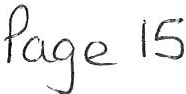 Page 15